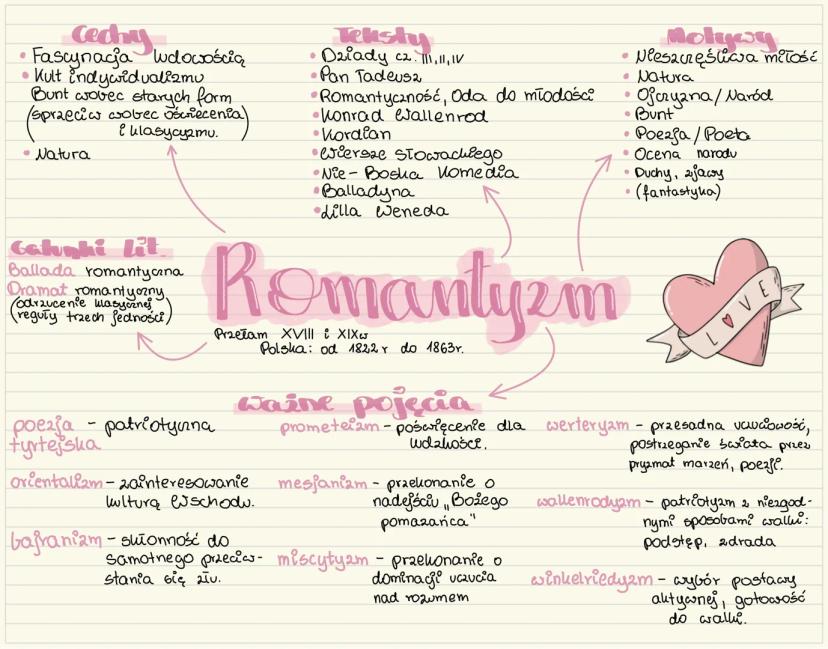 Cechy
• Fascynacja ludowością
• Kult indywidualizmu
Bunt wobec starych form
(sprzeciw wobec oświecenia
i klasycyzmu.)
• Natura
Teksty
• Dziady cz. III, II, IV
• Pan Tadeusz
• Romantyczność, Oda do młodości
• Konrad Wallenrod
• Kordian
• Wiersze Słowackiego
• Nie-Boska Komedia
• Balladyna
• Lilla Weneda
Motywy
• Nieszczęśliwa miłość
• Natura
• Ojczyzna/Naród
• Bunt
• Poezja/Poeta
• Ocena narodu
• Duchy, zjawy
• (fantastyka)
Gatunki lit.
Ballada romantyczna
Dramat romantyczny
(odrzucenie klasycznej
reguły trzech jedności)
Romantyzm
Przełam XVIII i XIXw
Polska: od 1822r do 1863r.
LOVE
ważne pojęcia
poezja - patriotyczna
tyrtejska
orientalizm - zainteresowanie
kulturą Wschodu.
bajranizm - skłonność do
samotnego przeciw-
stania się złu.
prometeizm - poświęcenie dla
ludzkości.
mesjanizm - przekonanie o
nadejściu „Bożego
pomazańca"
miscytyzm - przekonanie o
dominacji uczucia
nad rozumem
werteryzm - przesadna uczuciowość,
postrzeganie świata przez
pryzmat marzeń, poezji.
wallenrodyzm - patriotyzm z niezgod-
nymi sposobami walki:
podstęp, zdrada
winkelriedyzm - wybór postawy
aktywnej, gotowość
do walki.